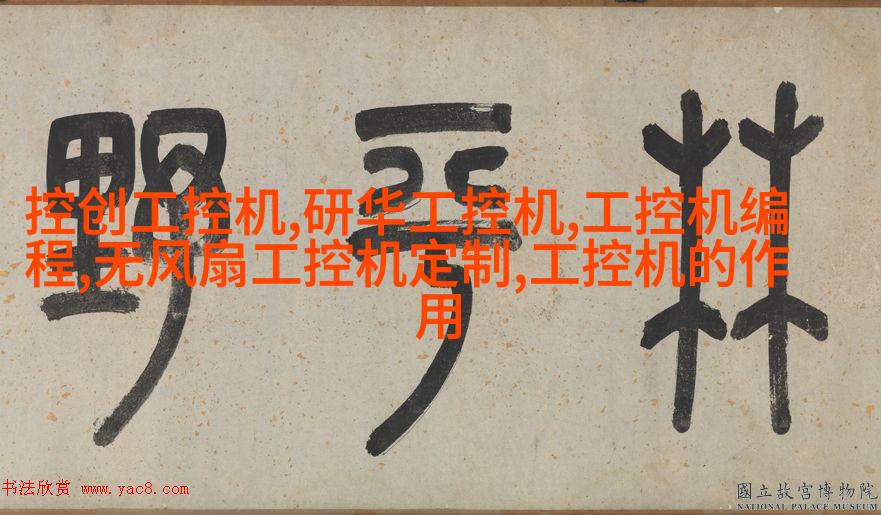 林平野
控创工控机,研华工控机,工控机编
程,无风扇工控机定制,工控机的作
用
书法欣赏 www.yac8.com
國立故宮博物院
NATIONAL PALACE MUSEUM